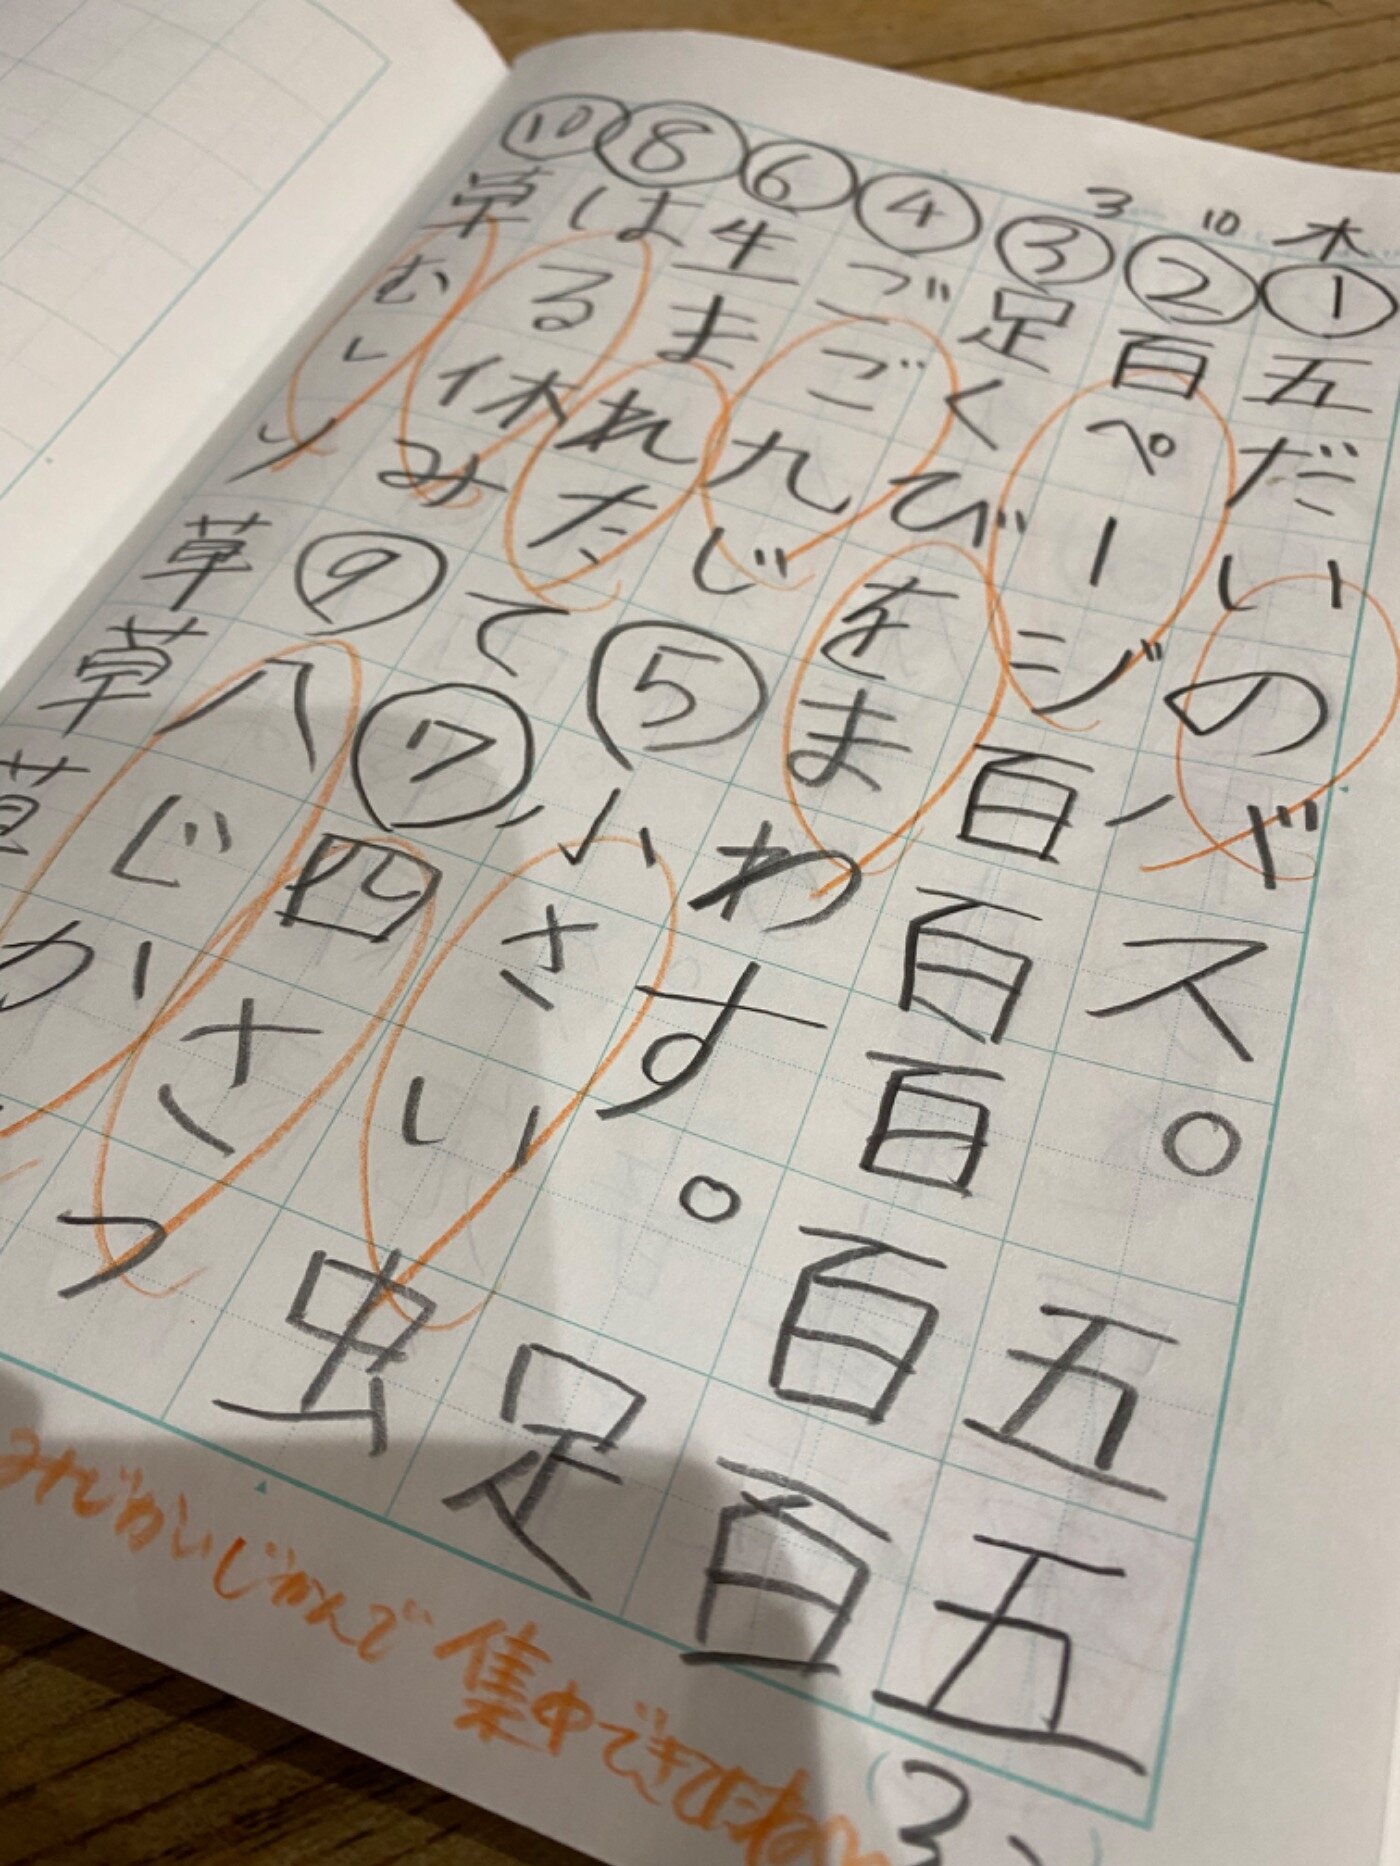 3 10 木
①五だいのバス。五五
②百ページ百百百百百
③足くびをまわす。足
④ごご九じ⑤小さい虫
⑥生まれたて⑦四さつ
⑧はる休み⑨八じか
⑩草むしり草草草
みじかいじかんで集中できてたね